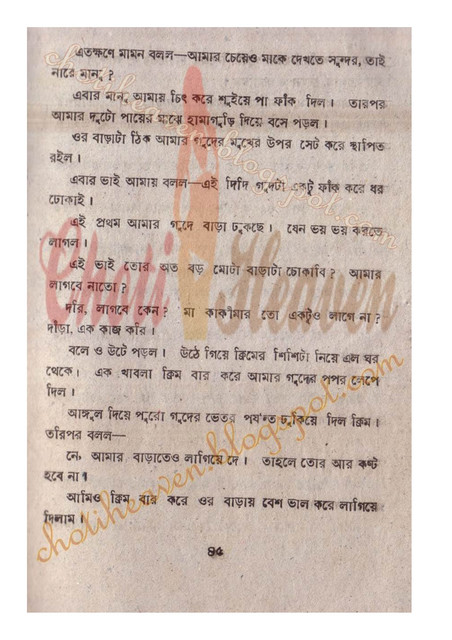 এতক্ষণে মামন বলল—আমার চেয়েও মাকে দেখতে সুন্দর, তাই
নারে মানু ?
এবার মানু আমায় চিৎ করে শুইয়ে পা ফাঁক দিল । তারপর
আমার দুটো পায়ের মাঝে হামাগুড়ি দিয়ে বসে পড়ল ।
ওর বাড়াটা ঠিক আমার গুদের মুখের উপর সেট করে স্থাপিত
রইল ।
এবার ভাই আমায় বলল—এই দিদি গুদটা একটু ফাঁক করে ধর
ঢোকাই ।
এই প্রথম আমার গুদে বাড়া ঢুকছে । যেন ভয় ভয় করতে
লাগল ।
এই ভাই তোর অত বড় মোটা বাড়াটা ঢোকাবি ? আমার
লাগবে নাতো ?
দূর, লাগবে কেন ? মা কাকীমার তো একটুও লাগে না ?
দাঁড়া, এক কাজ করি ।
বলে ও উটে পড়ল । উঠে গিয়ে ক্রিমের শিশিটা নিয়ে এল ঘর
থেকে । এক থাবলা ক্রিম বার করে আমার গুদের পপর লেপে
দিল ।
আঙ্গুল দিয়ে পুরো গুদের ভেতর পর্যন্ত ঢুকিয়ে দিল ক্রিম ।
তারপর বলল—
নে, আমার বাড়াতেও লাগিয়ে দে । তাহলে তোর আর কষ্ট
হবে না ।
আমিও ক্রিম বার করে ওর বাড়ায় বেশ ভাল করে লাগিয়ে
দিলাম ।
৪৫
Choti Heaven
chotiheaven.blogspot.com
chotiheaven.blogspot.com